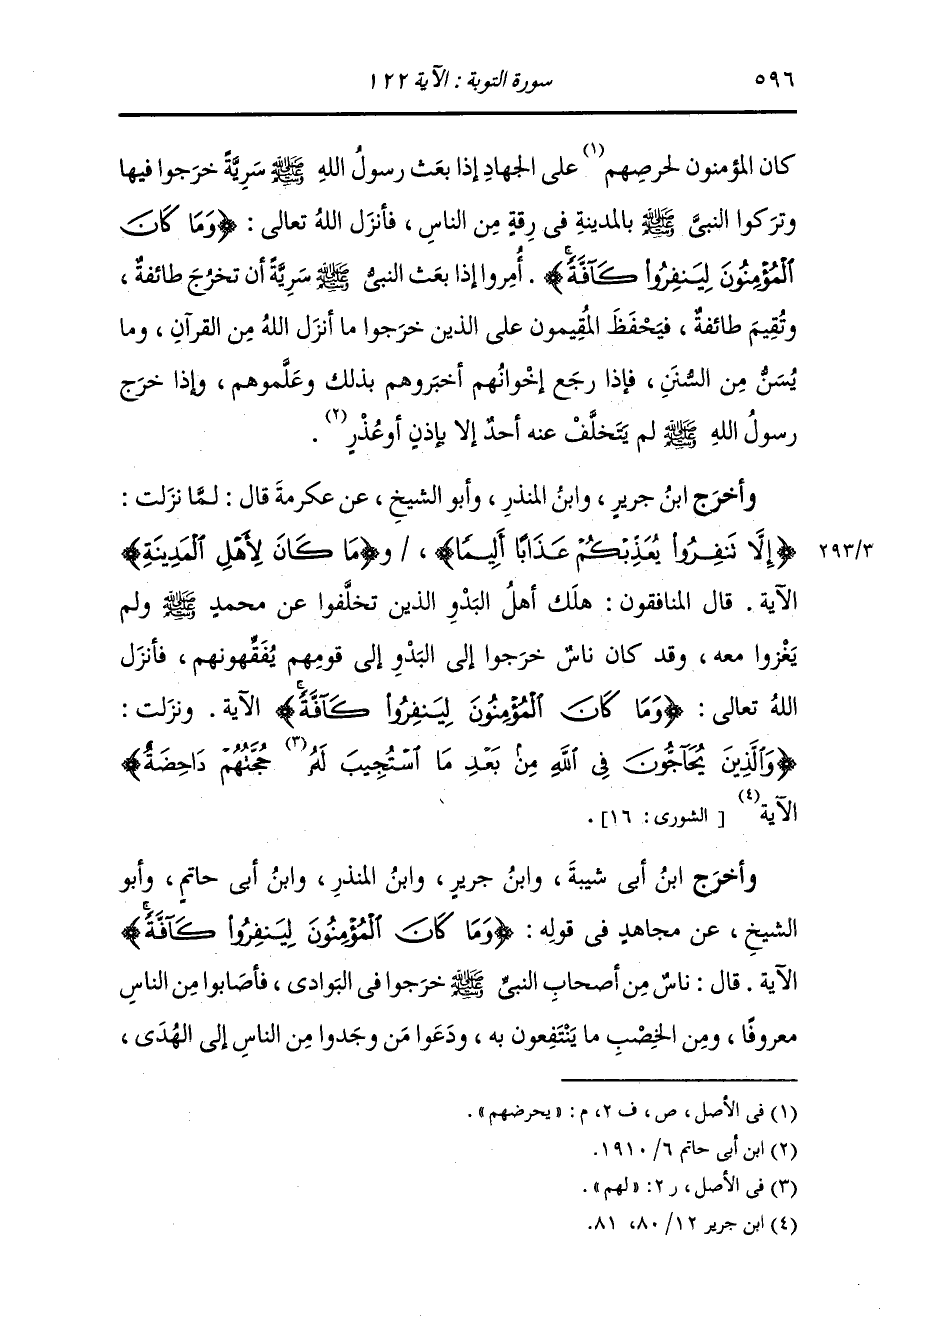 ٥٩٦ سورة التوبة : الآية ١٢٢
كان المؤمنون لحرصِهم(١) على الجهادِ إذا بعَث رسولُ اللهِ ﷺ سَرِيَّةً خرَجوا فيها
وترَكوا النبىَّ ﷺ بالمدينةِ فى رِقةٍ مِن الناسِ ، فأنزَل اللهُ تعالى : ﴿وَمَا كَانَ
ٱلْمُؤْمِنُونَ لِيَنفِرُوا۟ كَآفَّةً ۚ﴾ . أُمِروا إذا بعَث النبىُّ ﷺ سَرِيَّةً أن تخرُجَ طائفةٌ ،
وتُقِيمَ طائفةٌ ، فيَحْفَظَ المُقِيمون على الذين خرَجوا ما أنزَل اللهُ مِن القرآنِ ، وما
يُسَنُّ مِن السُّنَنِ ، فإذا رجَع إخْوانُهم أخبَروهم بذلك وعَلَّموهم ، وإذا خرَج
رسولُ اللهِ ﷺ لم يَتَخلَّفْ عنه أحدٌ إلا بإذنٍ أو عُذْرٍ(٢) .
وأخرَج ابنُ جريرٍ ، وابنُ المنذرِ ، وأبو الشيخِ ، عن عكرمةَ قال : لمَّا نزَلت :
﴿إِلَّا تَنفِرُوا۟ يُعَذِّبْكُمْ عَذَابًا أَلِيمًا﴾ ، / و﴿مَا كَانَ لِأَهْلِ ٱلْمَدِينَةِ﴾ ٢٩٣/٣
الآية . قال المنافقون : هلَك أهلُ البَدْوِ الذين تخلَّفوا عن محمدٍ ﷺ ولم
يَغْزوا معه ، وقد كان ناسٌ خرَجوا إلى البَدْوِ إلى قومِهم يُفَقِّهونهم ، فأنزَل
اللهُ تعالى : ﴿وَمَا كَانَ ٱلْمُؤْمِنُونَ لِيَنفِرُوا۟ كَآفَّةً ۚ﴾ الآية . ونزَلت :
﴿وَٱلَّذِينَ يُحَآجُّونَ فِى ٱللَّهِ مِنۢ بَعْدِ مَا ٱسْتُجِيبَ لَهُۥ(٣) حُجَّتُهُمْ دَاحِضَةٌ﴾
الآية(٤) [ الشورى : ١٦] .
وأخرَج ابنُ أبى شيبةَ ، وابنُ جريرٍ ، وابنُ المنذرِ ، وابنُ أبى حاتمٍ ، وأبو
الشيخِ ، عن مجاهدٍ فى قولِه : ﴿وَمَا كَانَ ٱلْمُؤْمِنُونَ لِيَنفِرُوا۟ كَآفَّةً ۚ﴾
الآية . قال : ناسٌ مِن أصحابِ النبىِّ ﷺ خرَجوا فى البَوادى ، فأصَابوا مِن الناسِ
معروفًا ، ومِن الخِصْبِ ما يَنْتَفِعون به ، ودَعَوا مَن وجَدوا مِن الناسِ إلى الهُدَى ،
(١) فى الأصل ، ص ، ف ٢، م : « يحرضهم » .
(٢) ابن أبى حاتم ٦/ ١٩١٠.
(٣) فى الأصل ، ر ٢: « لهم » .
(٤) ابن جرير ١٢/ ٨٠، ٨١.